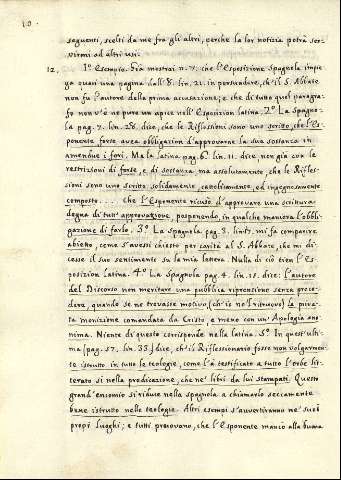 10.
seguenti, scelti da me fra gli altri, perche la lor notizia potrà ser-
virmi ad altri usi.
12. 1º Esempio. Già mostrai n. 7. che l'Esposizione Spagnola impie-
ga quasi una pagina dall' 8. lin. 21. in persuadere, ch'il S. Abbate
non fu l'autore della prima accusazione; e che di tutto quel paragra-
fo non v'è ne pure un apice nell'Esposizion latina. 2º La Spagno-
la pag. 7. lin. 28. dice, che le Riflessioni sono uno scritto, che l'Es-
ponente forse avea obbligazion d'approvare la sua sostanza in
amendue i fori. Ma la latina pag. 6. lin. 11. dice non già con le
restrizioni di forse, e di sostanza ma assolutamente, che le Rifles-
sioni sono uno scritto solidamente, cattolicamente, ed ingegnosamente
composto... che l'Esponente ricusò d'approvare una scrittura
degna di tutt'approvazione, posponendo in qualche maniera l'obbli-
gazione di farlo. 3º La Spagnola pag. 3. lin. mi fa comparire
abietto, come s'avessi chiesto per carità al S. Abbate, che mi di-
cesse il suo sentimento su la mia latina. Nulla di ciò tien l'Es-
posizion latina. 4º La Spagnola pag. 4. lin. 15. dice: l'autore
del Discorso non meritare una pubblica riprensione senza prece-
dere, quando se ne trovasse motivo (ch'io no'l ritruovo) la priva-
ta monizione comandata da Cristo, e meno con un'Apologia ano-
nima. Niente di questo corrisponde nella latina. 5º In quest'ulti-
ma (pag. 57. lin. 33.) dice, ch'il Riflessionario fosse non volgarmen-
te istrutto in tutte le teologie, come l'à testificato a tutto l'orbe lit-
terato sì nella predicazione, che ne' libri da lui stampati. Questo
grand'encomio si riduce nella spagnola a chiamarlo seccamente
bene istrutto nelle teologie. Altri esempi s'avvertiranno ne' suoi
propri luoghi; e tutti pruovano, che l'Esponente mancò alla buona